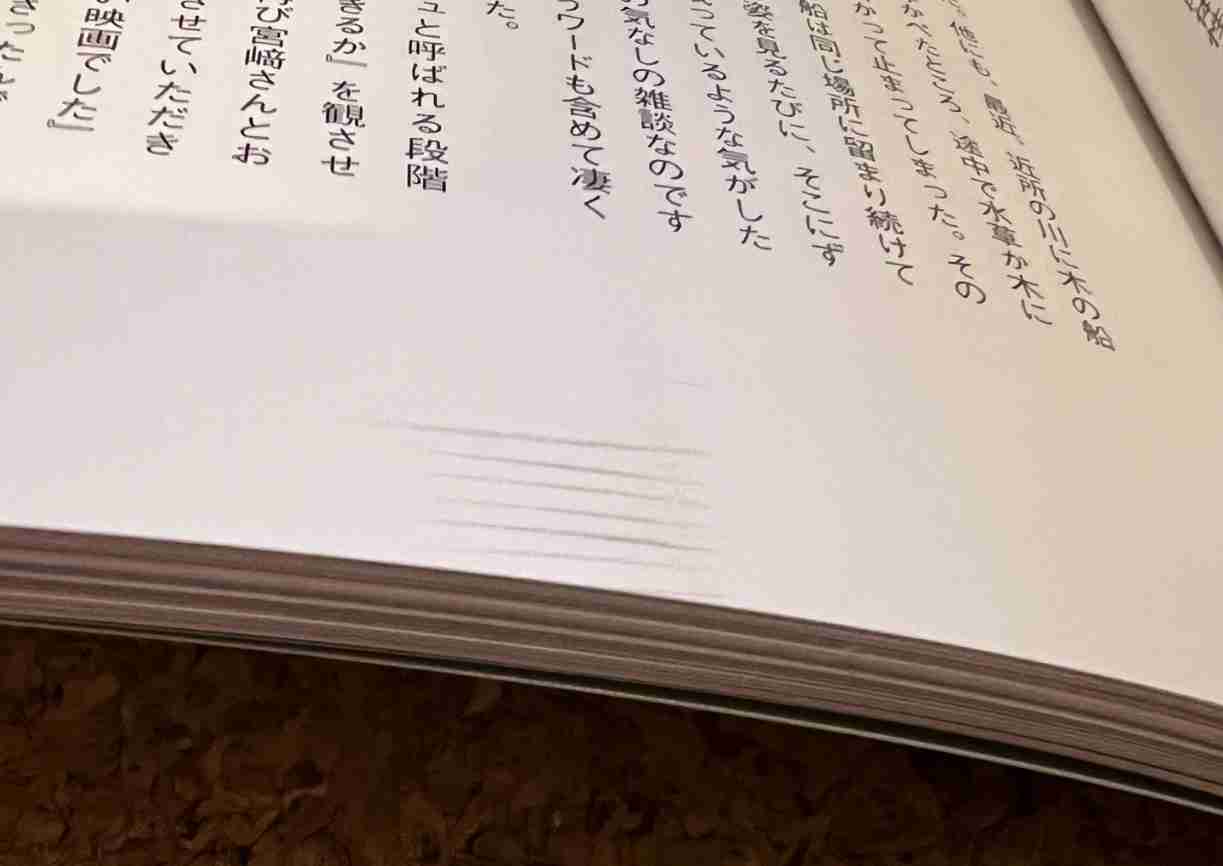 他にも、最近、近所の川に木の船
かべたところ、途中で水草が木に
かって止まってしまった。その
船は同じ場所に留まり続けて
姿を見るたびに、そこにず
っているような気がした
気なしの雑談なのです
ワードも含めて凄く
た。
ュと呼ばれる段階
きるか』を観させ
び宮﨑さんとお
させていただき
映画でした』